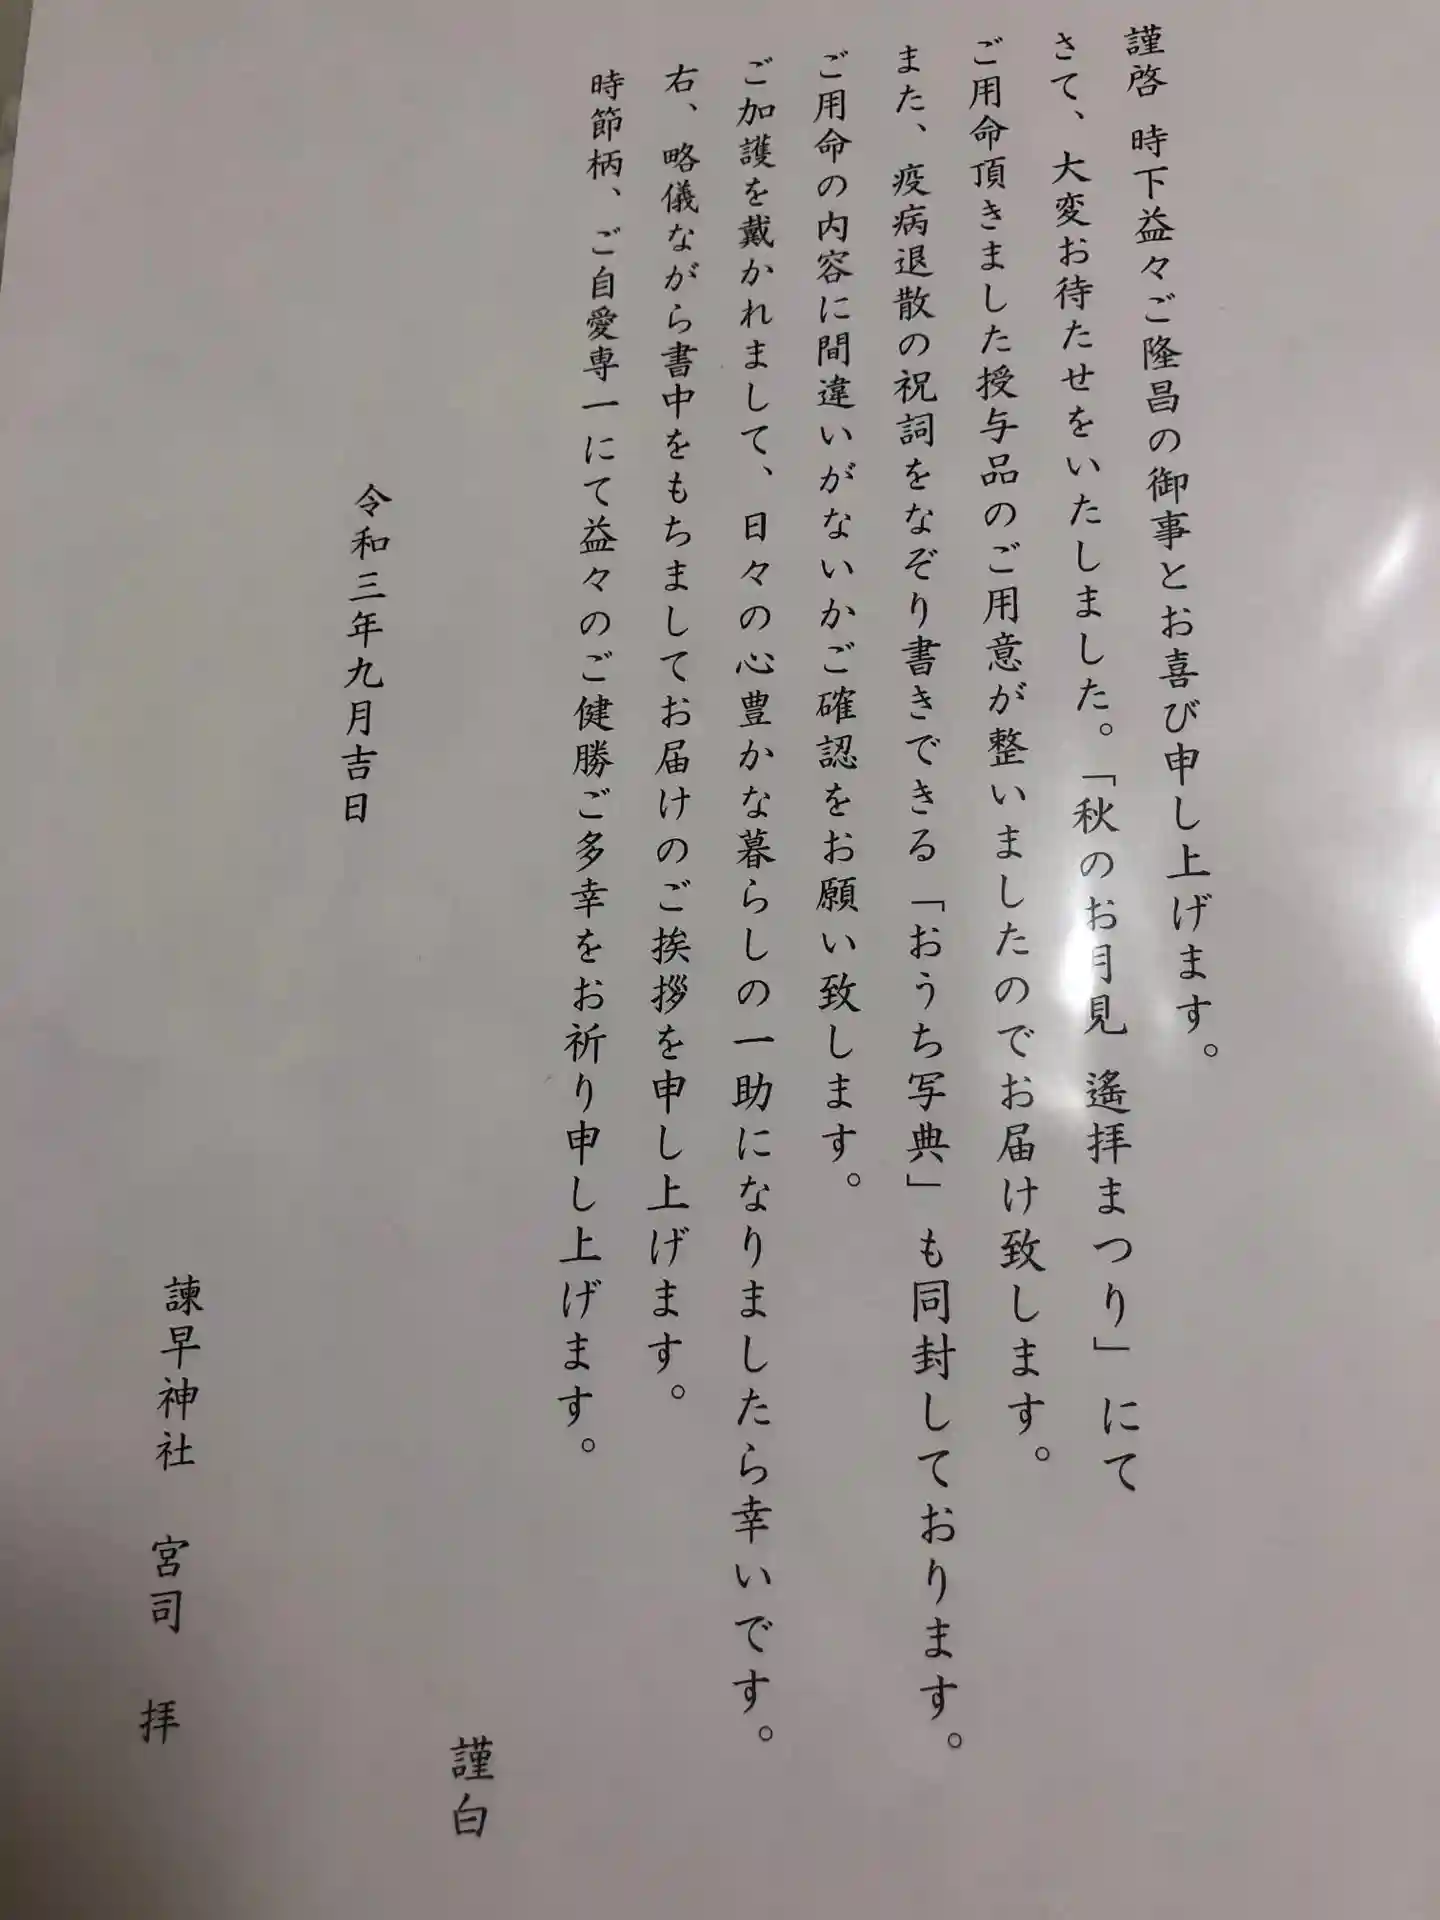 謹啓 時下益々ご隆昌の御事とお喜び申し上げます。
さて、大変お待たせをいたしました。「秋のお月見 遙拝まつり」にて
ご用命頂きました授与品のご用意が整いましたのでお届け致します。
また、疫病退散の祝詞をなぞり書きできる「おうち写典」も同封しております。
ご用命の内容に間違いがないかご確認をお願い致します。
ご加護を戴かれまして、日々の心豊かな暮らしの一助になりましたら幸いです。
右、略儀ながら書中をもちましてお届けのご挨拶を申し上げます。
時節柄、ご自愛専一にて益々のご健勝ご多幸をお祈り申し上げます。
謹白
令和三年九月吉日
諫早神社 宮司 拝